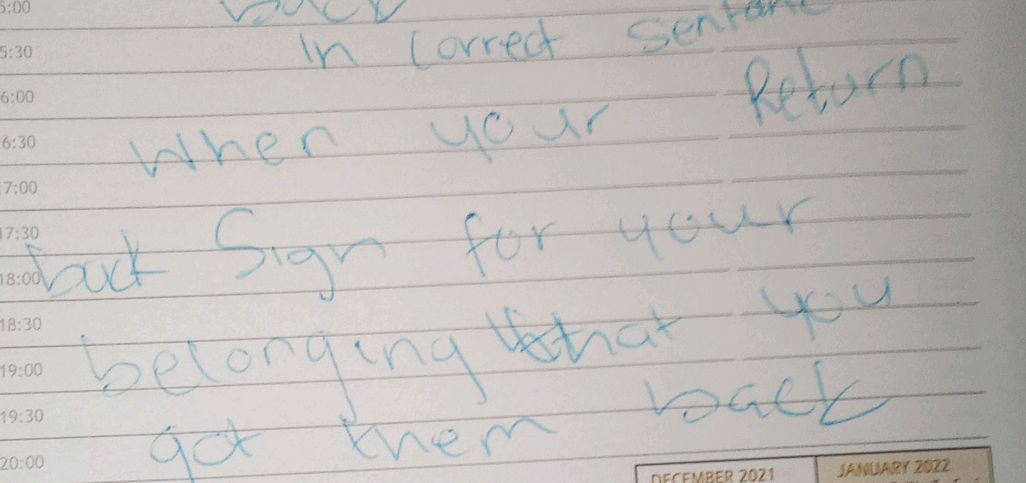 back
5:00
in correct sentanc
5:30
6:00
when your Return
6:30
17:00
back Sign for your
17:30
18:00
belonging that you
18:30
19:00
got them back
19:30
20:00
DECEMBER 2021 JANUARY 2022